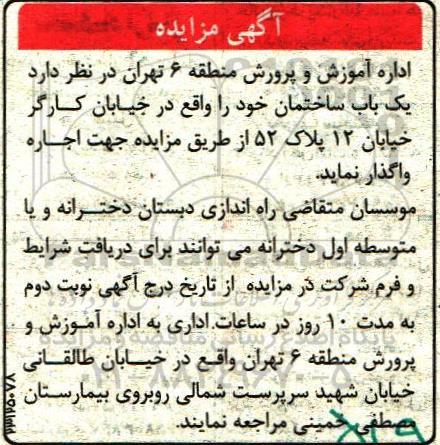 آگهی مزایده
اداره آموزش و پرورش منطقه ۶ تهران در نظر دارد
یک باب ساختمان خود را واقع در خیابان کارگر
خیابان ۱۲ پلاک ۵۲ از طریق مزایده جهت اجاره
واگذار نماید.
موسسان متقاضی راه اندازی دبستان دخترانه و یا
متوسطه اول دخترانه می توانند برای دریافت شرایط
و فرم شرکت در مزایده از تاریخ درج آگهی نوبت دوم
به مدت ۱۰ روز در ساعات اداری به اداره آموزش و
پرورش منطقه ۶ تهران واقع در خیابان طالقانی
خیابان شهید سرپرست شمالی روبروی بیمارستان
مصطفی خمینی مراجعه نمایند.